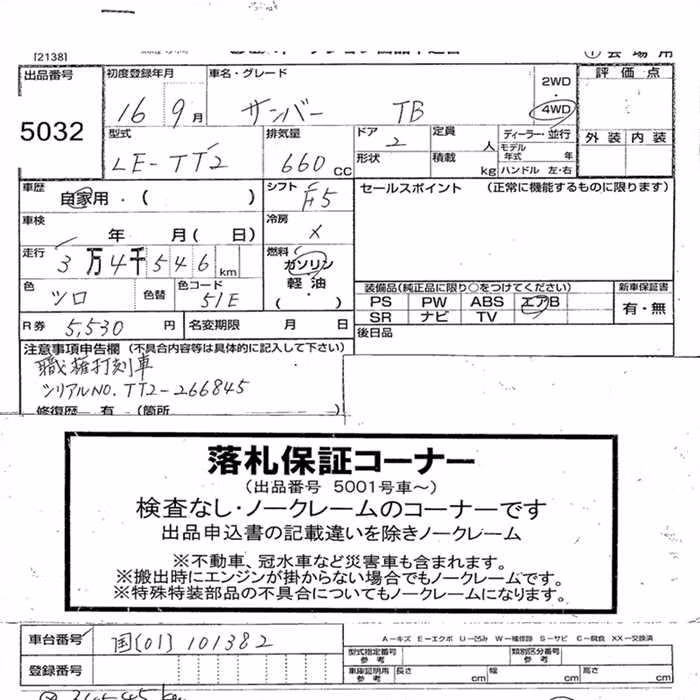 [2138] ① 会場用
出品番号 初度登録年月 車名・グレード 2WD 評価点
5032 16 9月 サンバー TB 4WD
型式 排気量 ドア 定員 ディーラー・並行 外装 内装
LE-TT2 660cc 2 人 モデル年式 年
形状 積載 kg ハンドル 左・右
車歴 自家用・( ) シフト F5 セールスポイント (正常に機能するものに限ります)
車検 年 月( 日) 冷房 ×
走行 3万4千546km 燃料 ガソリン
軽油
(・)
色 ツロ 色替 色コード 51E
装備品(純正品に限り○をつけてください) 新車保証書
PS PW ABS エアB 有・無
SR ナビ TV
R券 5,530円 名変期限 月 日 後日品
注意事項申告欄 (不具合内容等は具体的に記入して下さい)
職権打刻車
シリアルNO. TT2-266845
修復歴 有 (箇所 )
落札保証コーナー
(出品番号 5001号車〜)
検査なし・ノークレームのコーナーです
出品申込書の記載違いを除きノークレーム
※不動車、冠水車など災害車も含まれます。
※搬出時にエンジンが掛からない場合でもノークレームです。
※特殊特装部品の不具合についてもノークレームになります。
A-キズ E-エクボ U-凹み W-補修跡 S-サビ C-腐食 XX-交換済
車台番号 国[01]101382 型式指定番号 参考 類別区分番号 参考
登録番号 車庫証明用 参考 長さ cm 幅 cm 高さ cm